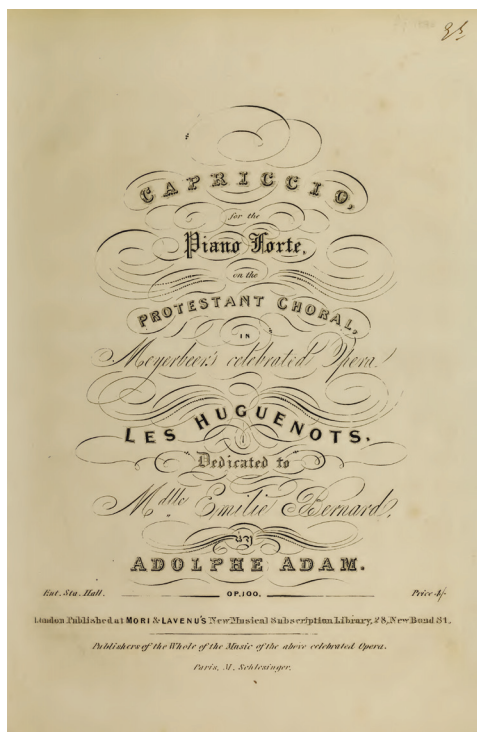 CAPRICCIO,
for the
Piano Forte,
on the
PROTESTANT CHORAL,
IN
Meyerbeer's celebrated Opera.
LES HUGUENOTS.
Dedicated to
Mdlle Emilie Bernard,
BY
ADOLPHE ADAM.
Ent. Sta. Hall. OP. 100. Price 4/.
London Published at MORI & LAVENU'S New Musical Subscription Library, 28, New Bond St.
Publishers of the Whole of the Music of the above celebrated Opera.
Paris, M. Schlesinger.